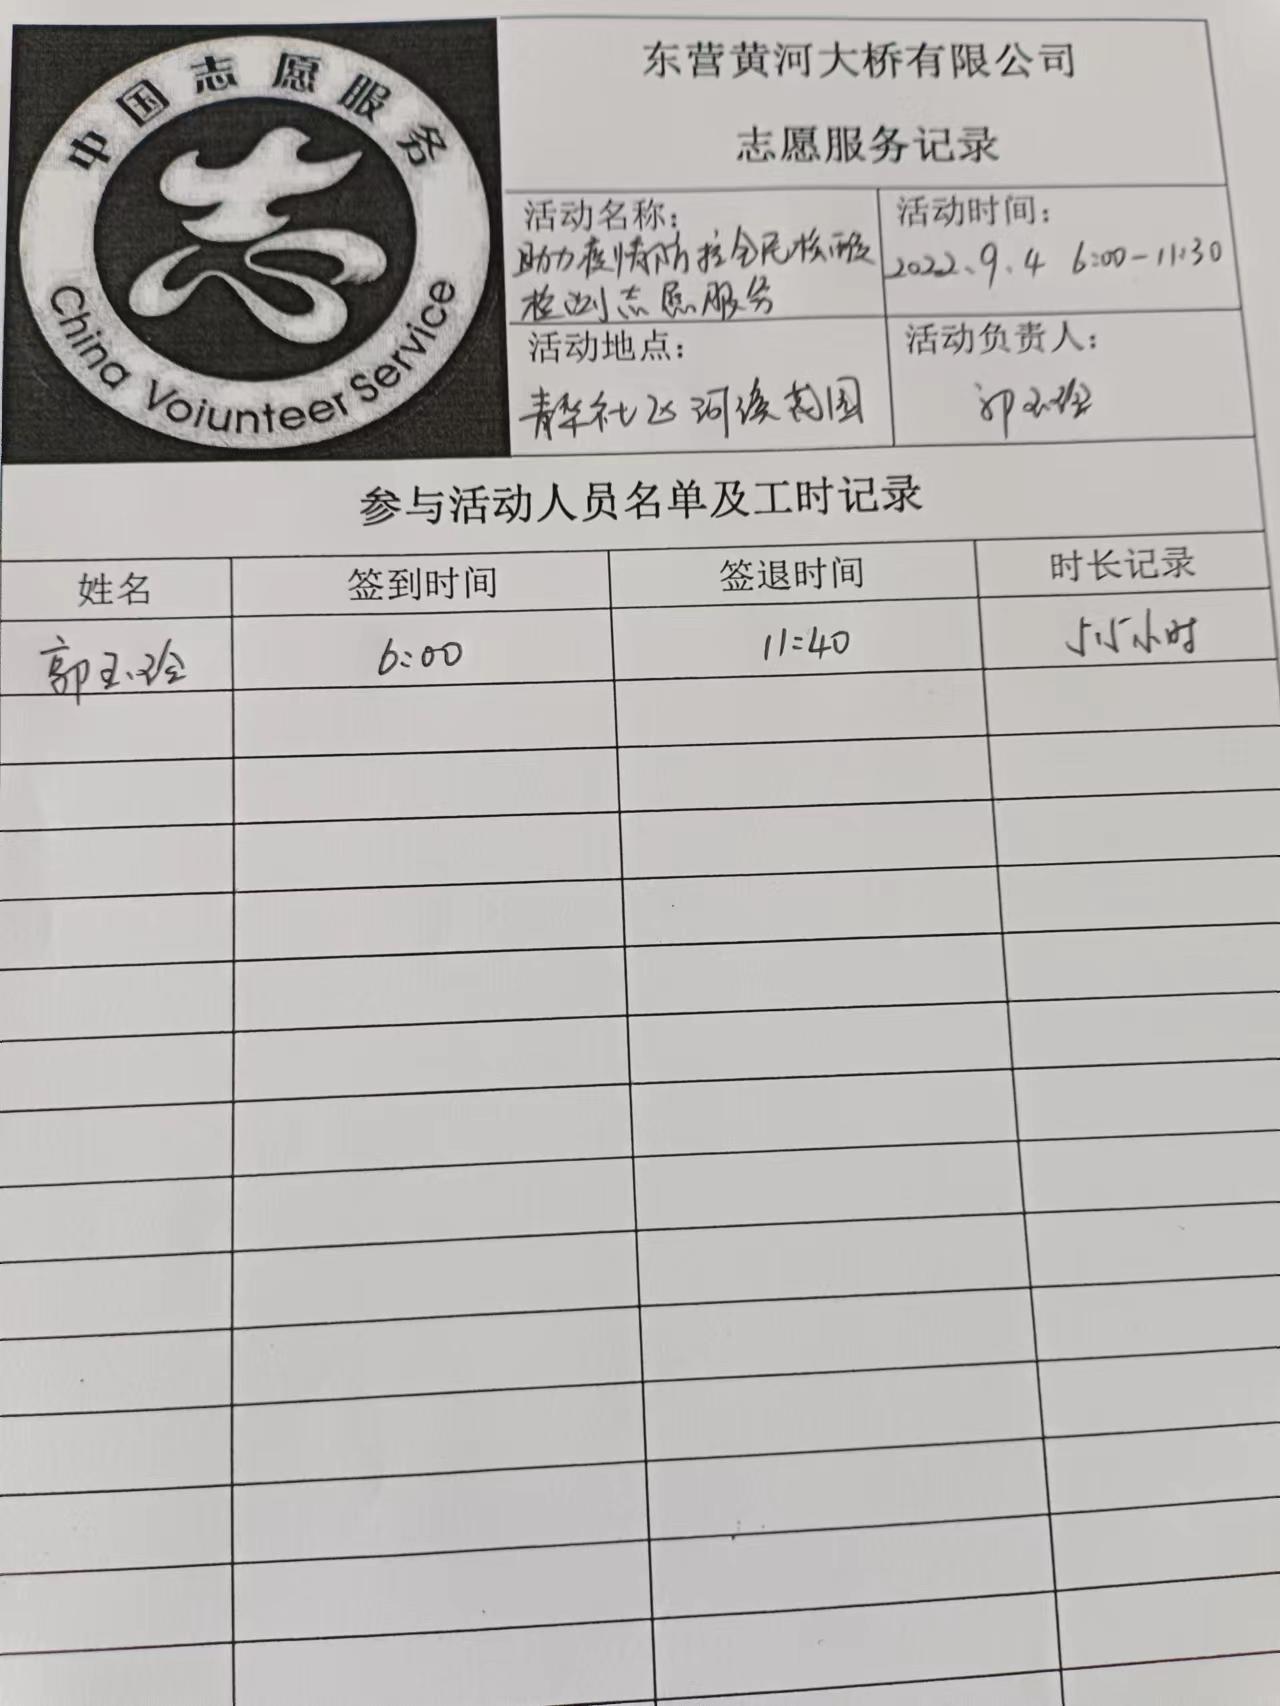 中国志愿服务
China Voiunteer Service
东营黄河大桥有限公司
志愿服务记录
活动名称：
助力疫情防控全民核酸
检测志愿服务
活动时间：
2022.9.4 6:00-11:30
活动地点：
青华社区河滨花园
活动负责人：
郭玉玲
参与活动人员名单及工时记录
姓名 签到时间 签退时间 时长记录
郭玉玲 6:00 11:40 5.5小时